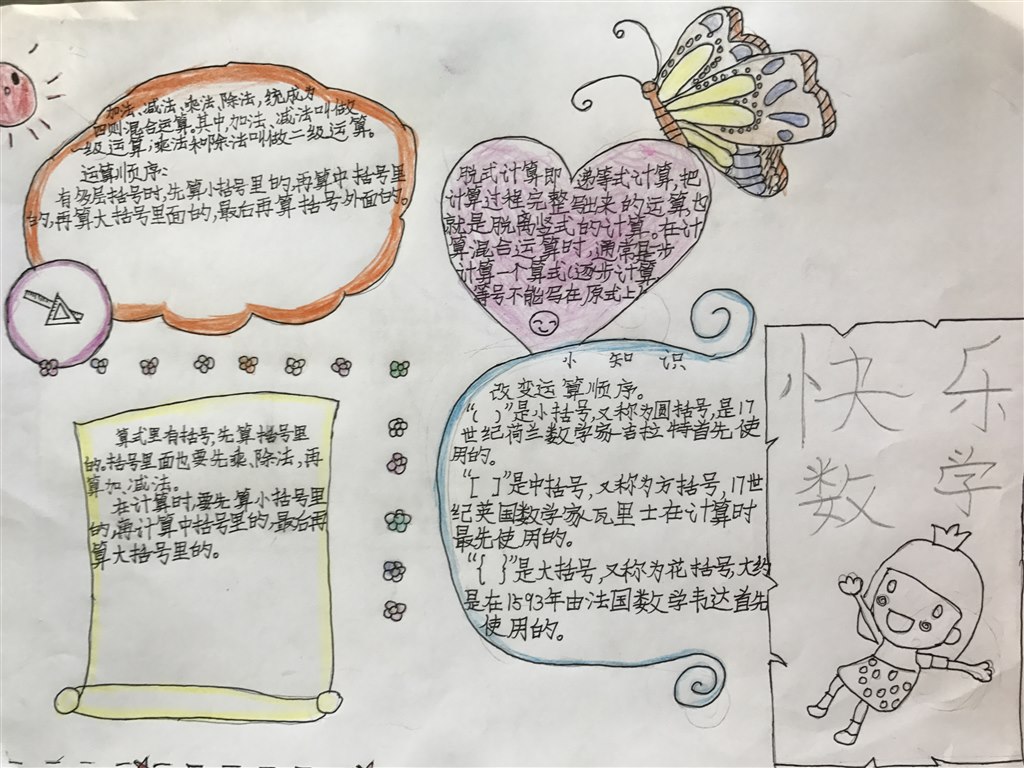 加法、减法、乘法、除法，统成为
四则混合运算。其中，加法、减法叫做
一级运算；乘法和除法叫做二级运算。
运算顺序：
有多层括号时，先算小括号里的，再算中括号里
的，再算大括号里面的，最后再算括号外面的。
脱式计算即递等式计算，把
计算过程完整写出来的运算，也
就是脱离竖式的计算。在计
算混合运算时，通常是一步
计算一个算式（逐步计算，
等号不能写在原式上）
小知识
改变运算顺序。
“（ ）”是小括号，又称为圆括号，是17
世纪荷兰数学家吉拉特首先使
用的。
“[ ]”是中括号，又称为方括号，17世
纪英国数学家瓦里士在计算时
最先使用的。
“{ }”是大括号，又称为花括号，大约
是在1593年由法国数学韦达首先
使用的。
算式里有括号，先算括号里
的。括号里面也要先乘、除法，再
算加、减法。
在计算时，要先算小括号里
的，再计算中括号里的，最后再
算大括号里的。
快乐
数学